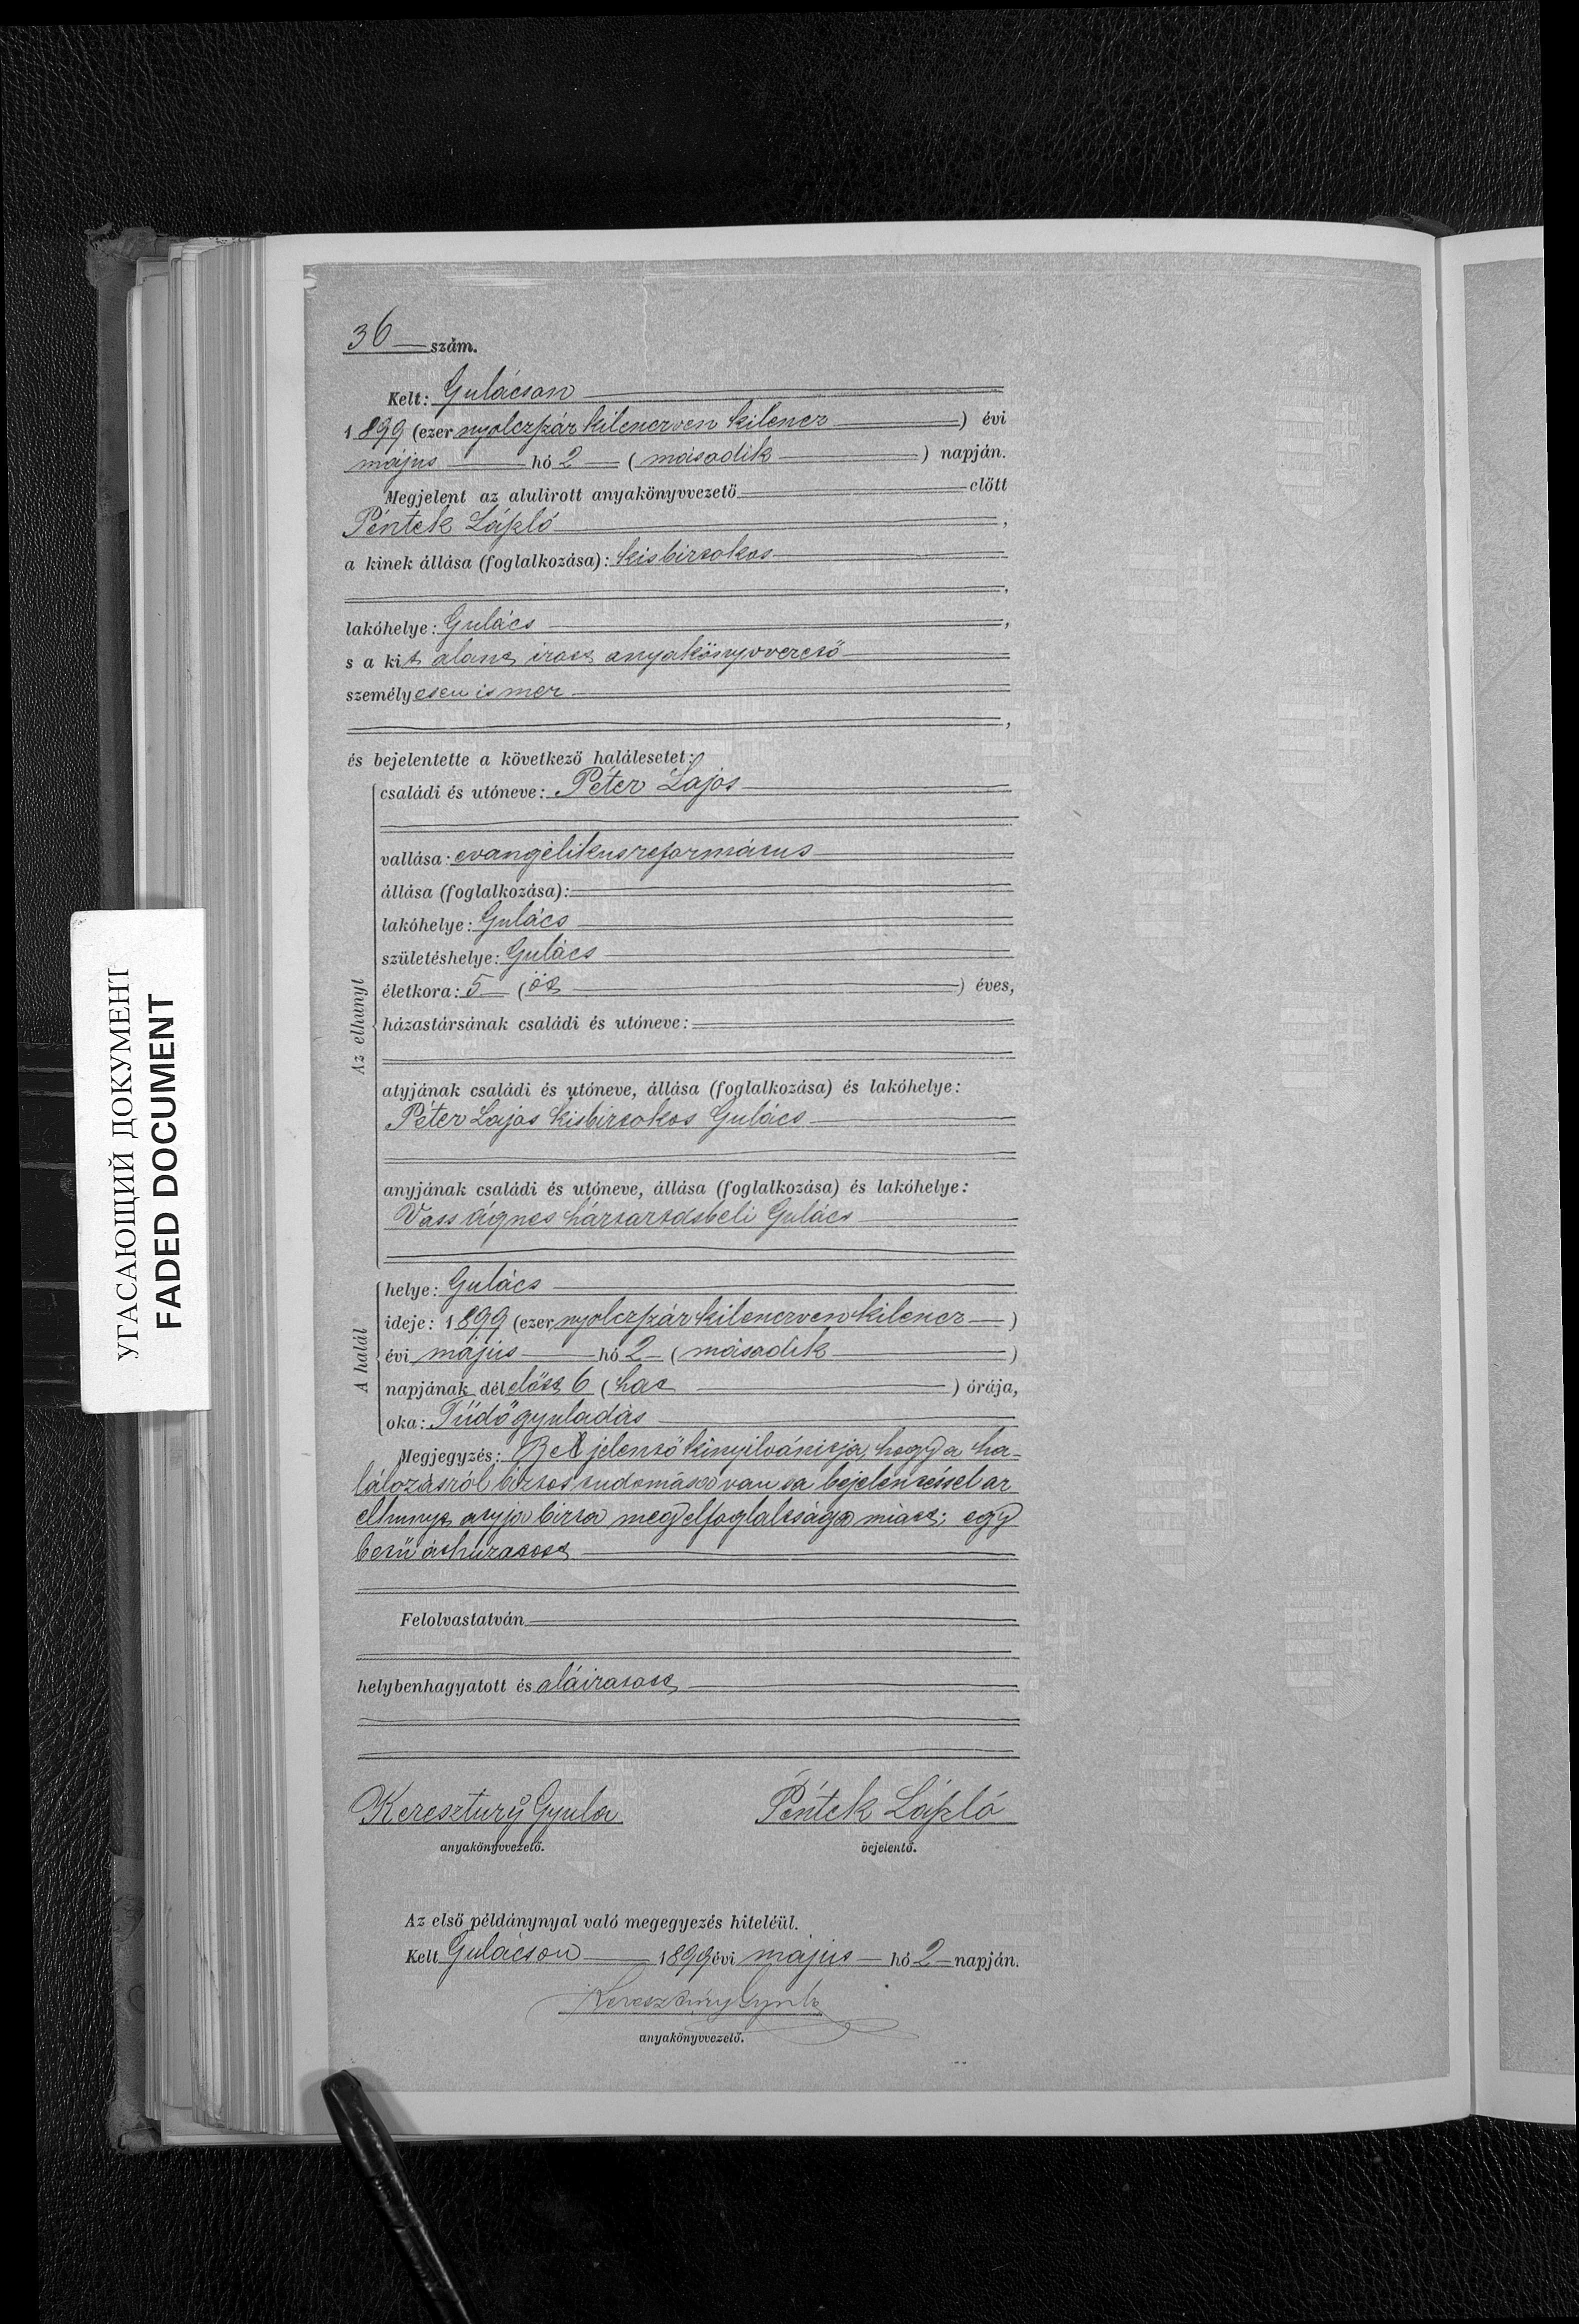 36 szám.
Kelt: Gulácson
1899 (ezer nyolczszáz kilenczven kilencz) évi
május hó 2 (második) napján.
Megjelent az alulirott anyakönyvvezető előtt
Péntek László,
a kinek állása (foglalkozása): kisbirtokos
,
lakóhelye: Gulács,
s a kit alant irott anyakönyvvezető
személyesen ismer
,
és bejelentette a következő halálesetet:
Az elhunyt
családi és utóneve: Péter Lajos
vallása: evangélikusreformátus
állása (foglalkozása):
lakóhelye: Gulács
születéshelye: Gulács
életkora: 5 (öt) éves,
házastársának családi és utóneve:
atyjának családi és utóneve, állása (foglalkozása) és lakóhelye:
Péter Lajos kisbirtokos Gulács
anyjának családi és utóneve, állása (foglalkozása) és lakóhelye:
Vass Ágnes háztartásbeli Gulács
A halál
helye: Gulács
ideje: 1899 (ezer nyolczszáz kilenczven kilencz)
évi május hó 2 (második)
napjának délelőtt 6 (hat) órája,
oka: Tüdőgyuladás
Megjegyzés: Bejelentő kinyilvánitja, hogy a ha-
lálozásról biztos tudomása van s a bejelentéssel az
elhunyt atyja bizta meg elfoglaltsága miatt; egy
betü áthuzatott
Felolvastatván
helybenhagyatott és aláiratott
Keresztury Gyula Péntek László
anyakönyvvezető. bejelentő.
Az első példánynyal való megegyezés hiteléül.
Kelt Gulácson 1899 évi május hó 2 napján.
Keresztury Gyula
anyakönyvvezető.
УГАСАЮЩИЙ ДОКУМЕНТ
FADED DOCUMENT